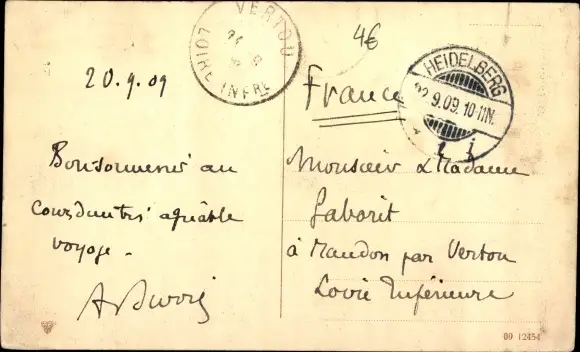 VERTOU
LOIRE INFRE
4€
HEIDELBERG
22.9.09. 10-11N.
20.9.09
France
Bon souvenir au
cours d'un très agréable
voyage.
Monsieur & Madame
Gaborit
à Maudon par Vertou
Loire Inférieure
09 12454